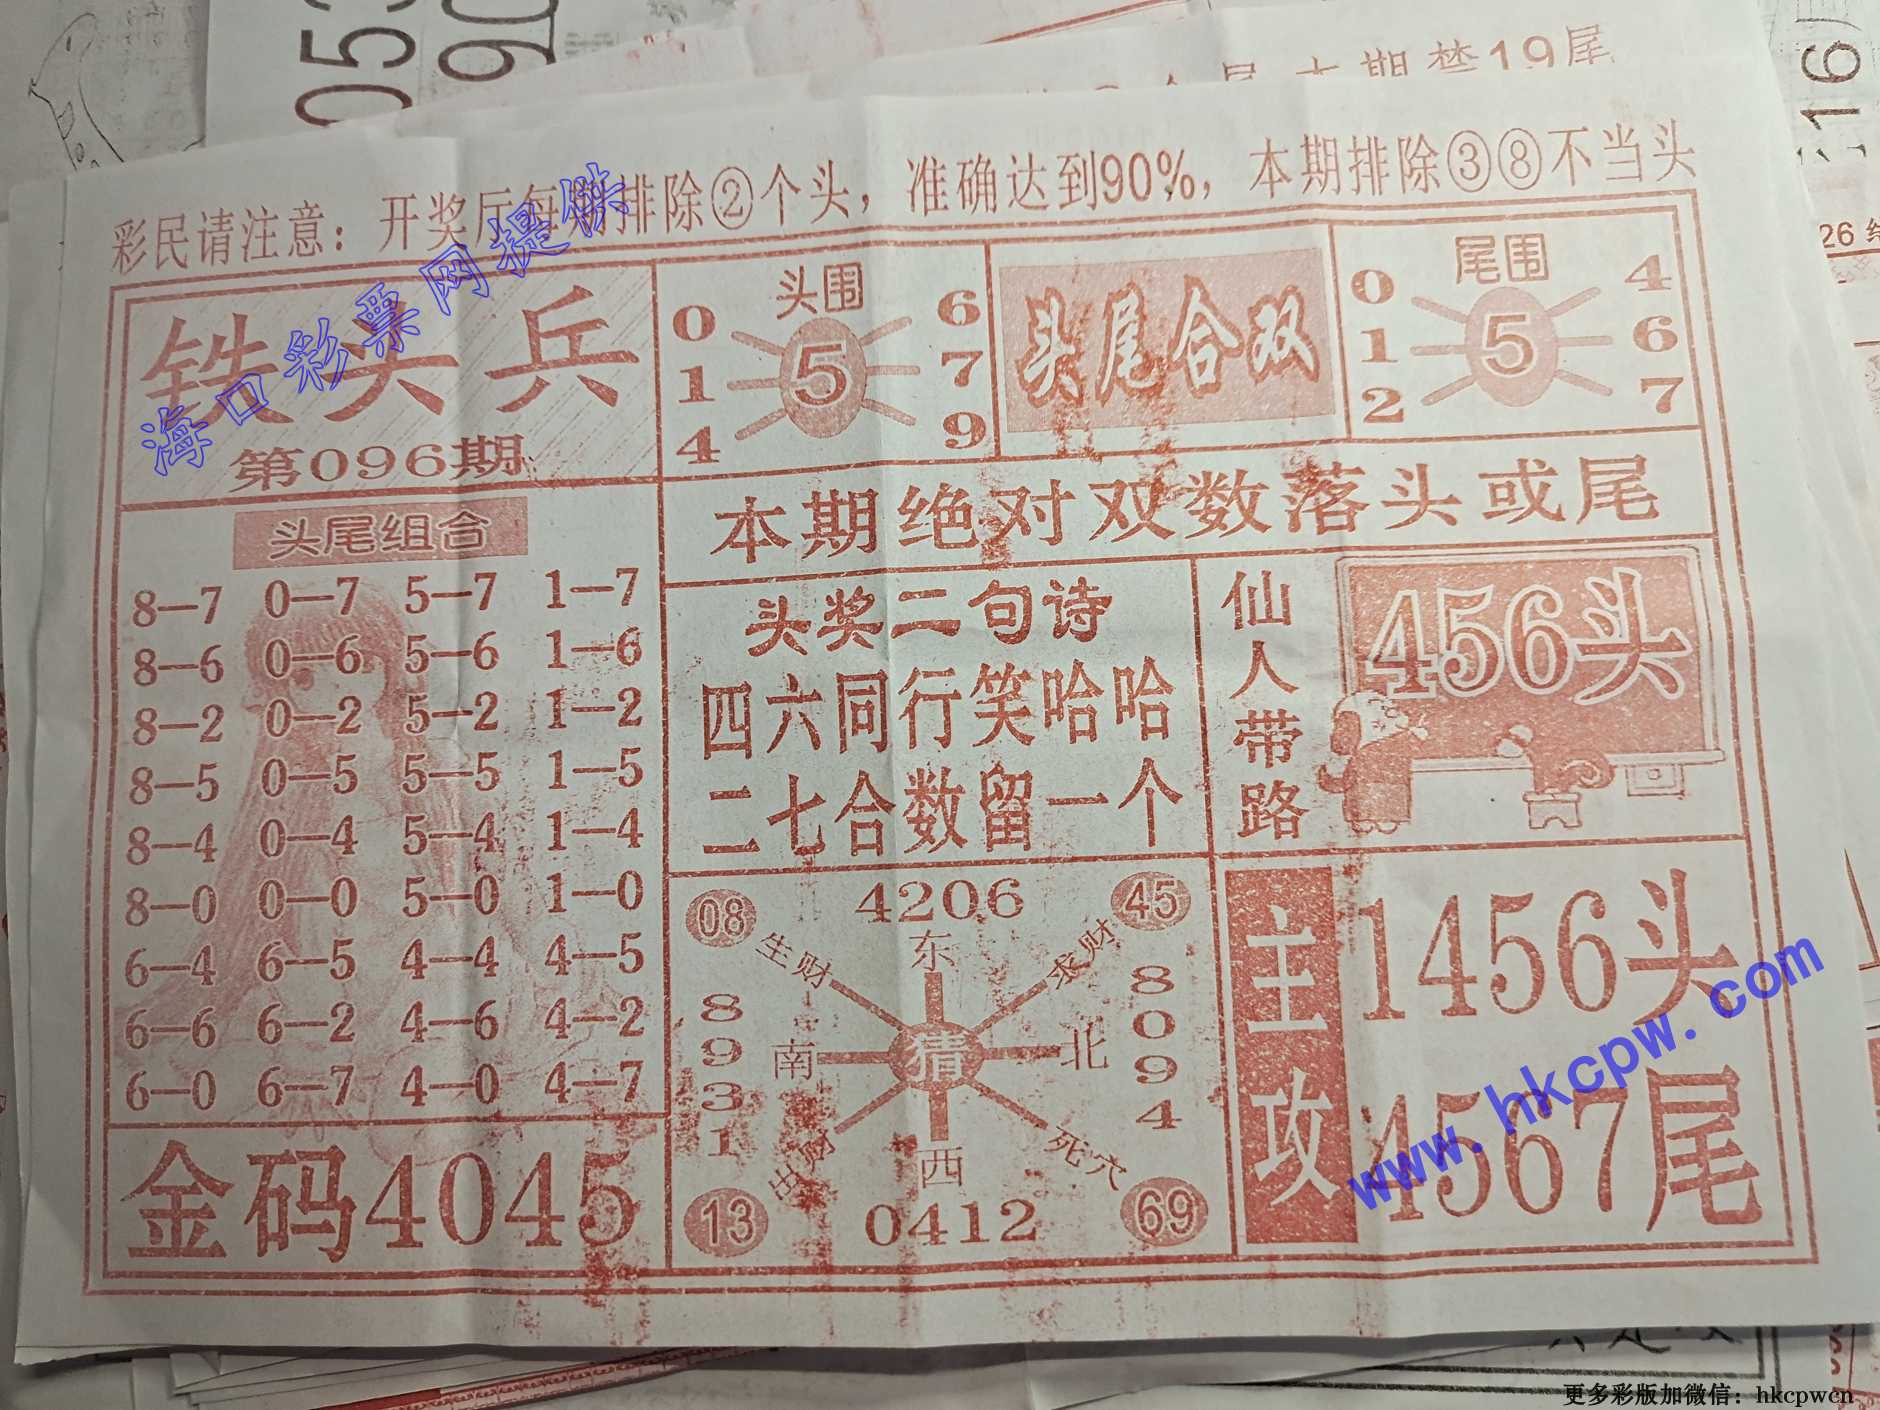 053
90
216
本期禁19尾
26
彩民请注意：开奖厅每期排除②个头，准确达到90%，本期排除③⑧不当头
海口彩票网提供
铁头兵
第096期
头围
0 6
1 5 7
4 9
头尾合双
尾围
0 4
1 5 6
2 7
本期绝对双数落头或尾
头尾组合
8—7 0—7 5—7 1—7
8—6 0—6 5—6 1—6
8—2 0—2 5—2 1—2
8—5 0—5 5—5 1—5
8—4 0—4 5—4 1—4
8—0 0—0 5—0 1—0
6—4 6—5 4—4 4—5
6—6 6—2 4—6 4—2
6—0 6—7 4—0 4—7
金码4045
头奖二句诗
四六同行笑哈哈
二七合数留一个
仙人带路
456头
08 4206 45
生财 东 求财
8931 南 猜 北 8094
西 死穴
13 0412 69
主攻
1456头
4567尾
www.hkcpw.com
更多彩版加微信：hkcpwcn